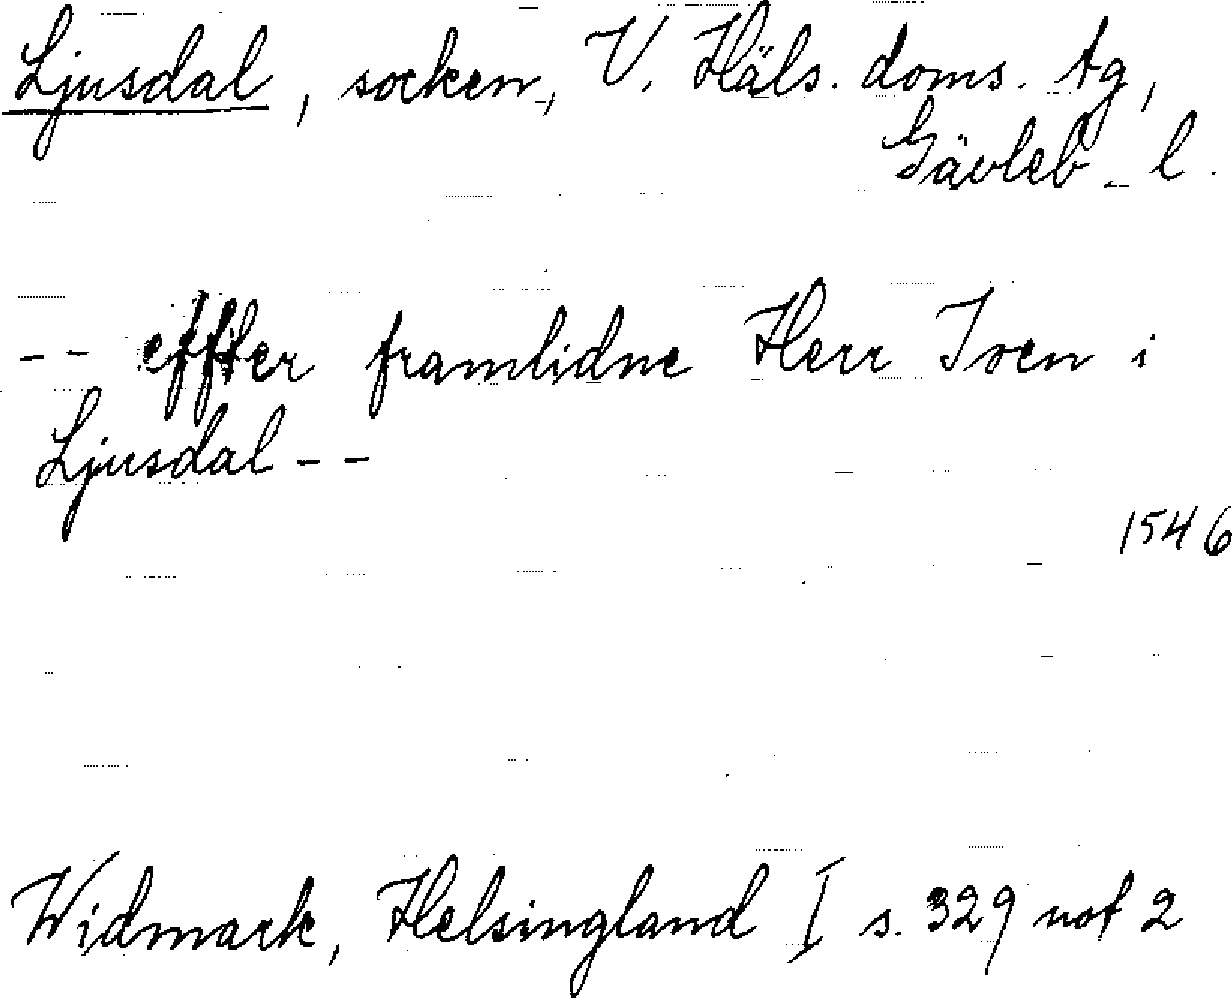 Ljusdal, socken, V. Häls. doms. tg,
Gävleb. l.
-- effter framlidne Herr Iven i
Ljusdal --
1546
Widmark, Helsingland I s. 329 not 2